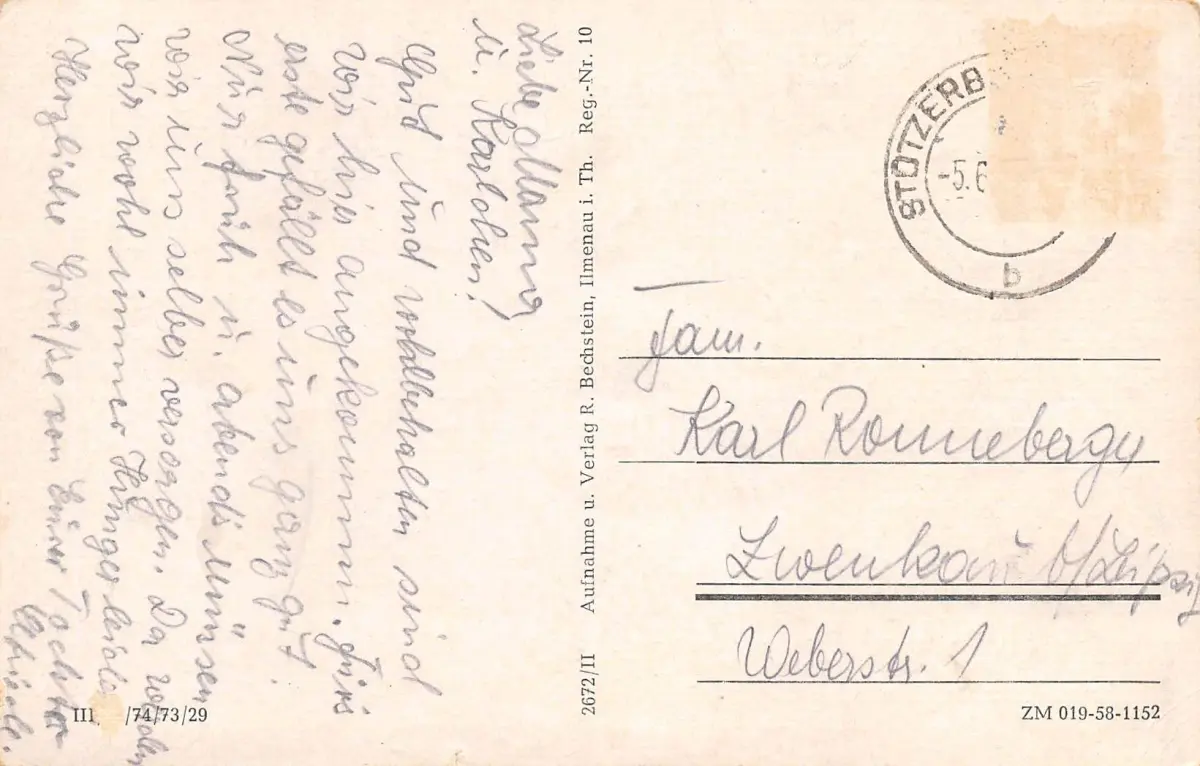 Liebe Mama
u. Karlchen!
Gut und wohlbehalten sind
wir hier angekommen. Fürs
erste gefällt es uns ganz gut.
Nur früh u. abends müssen
wir uns selber versorgen. Da werden
wir wohl immer Hunger leiden
Herzliche Grüße von Eurer Tochter
2672/II Aufnahme u. Verlag R. Bechstein, Ilmenau i. Th. Reg.-Nr. 10
STÜTZERB
-5.6
b
Fam.
Karl Ronneberg
Zwenkau b/Leipzig
Weberstr. 1
III /74/73/29
ZM 019-58-1152